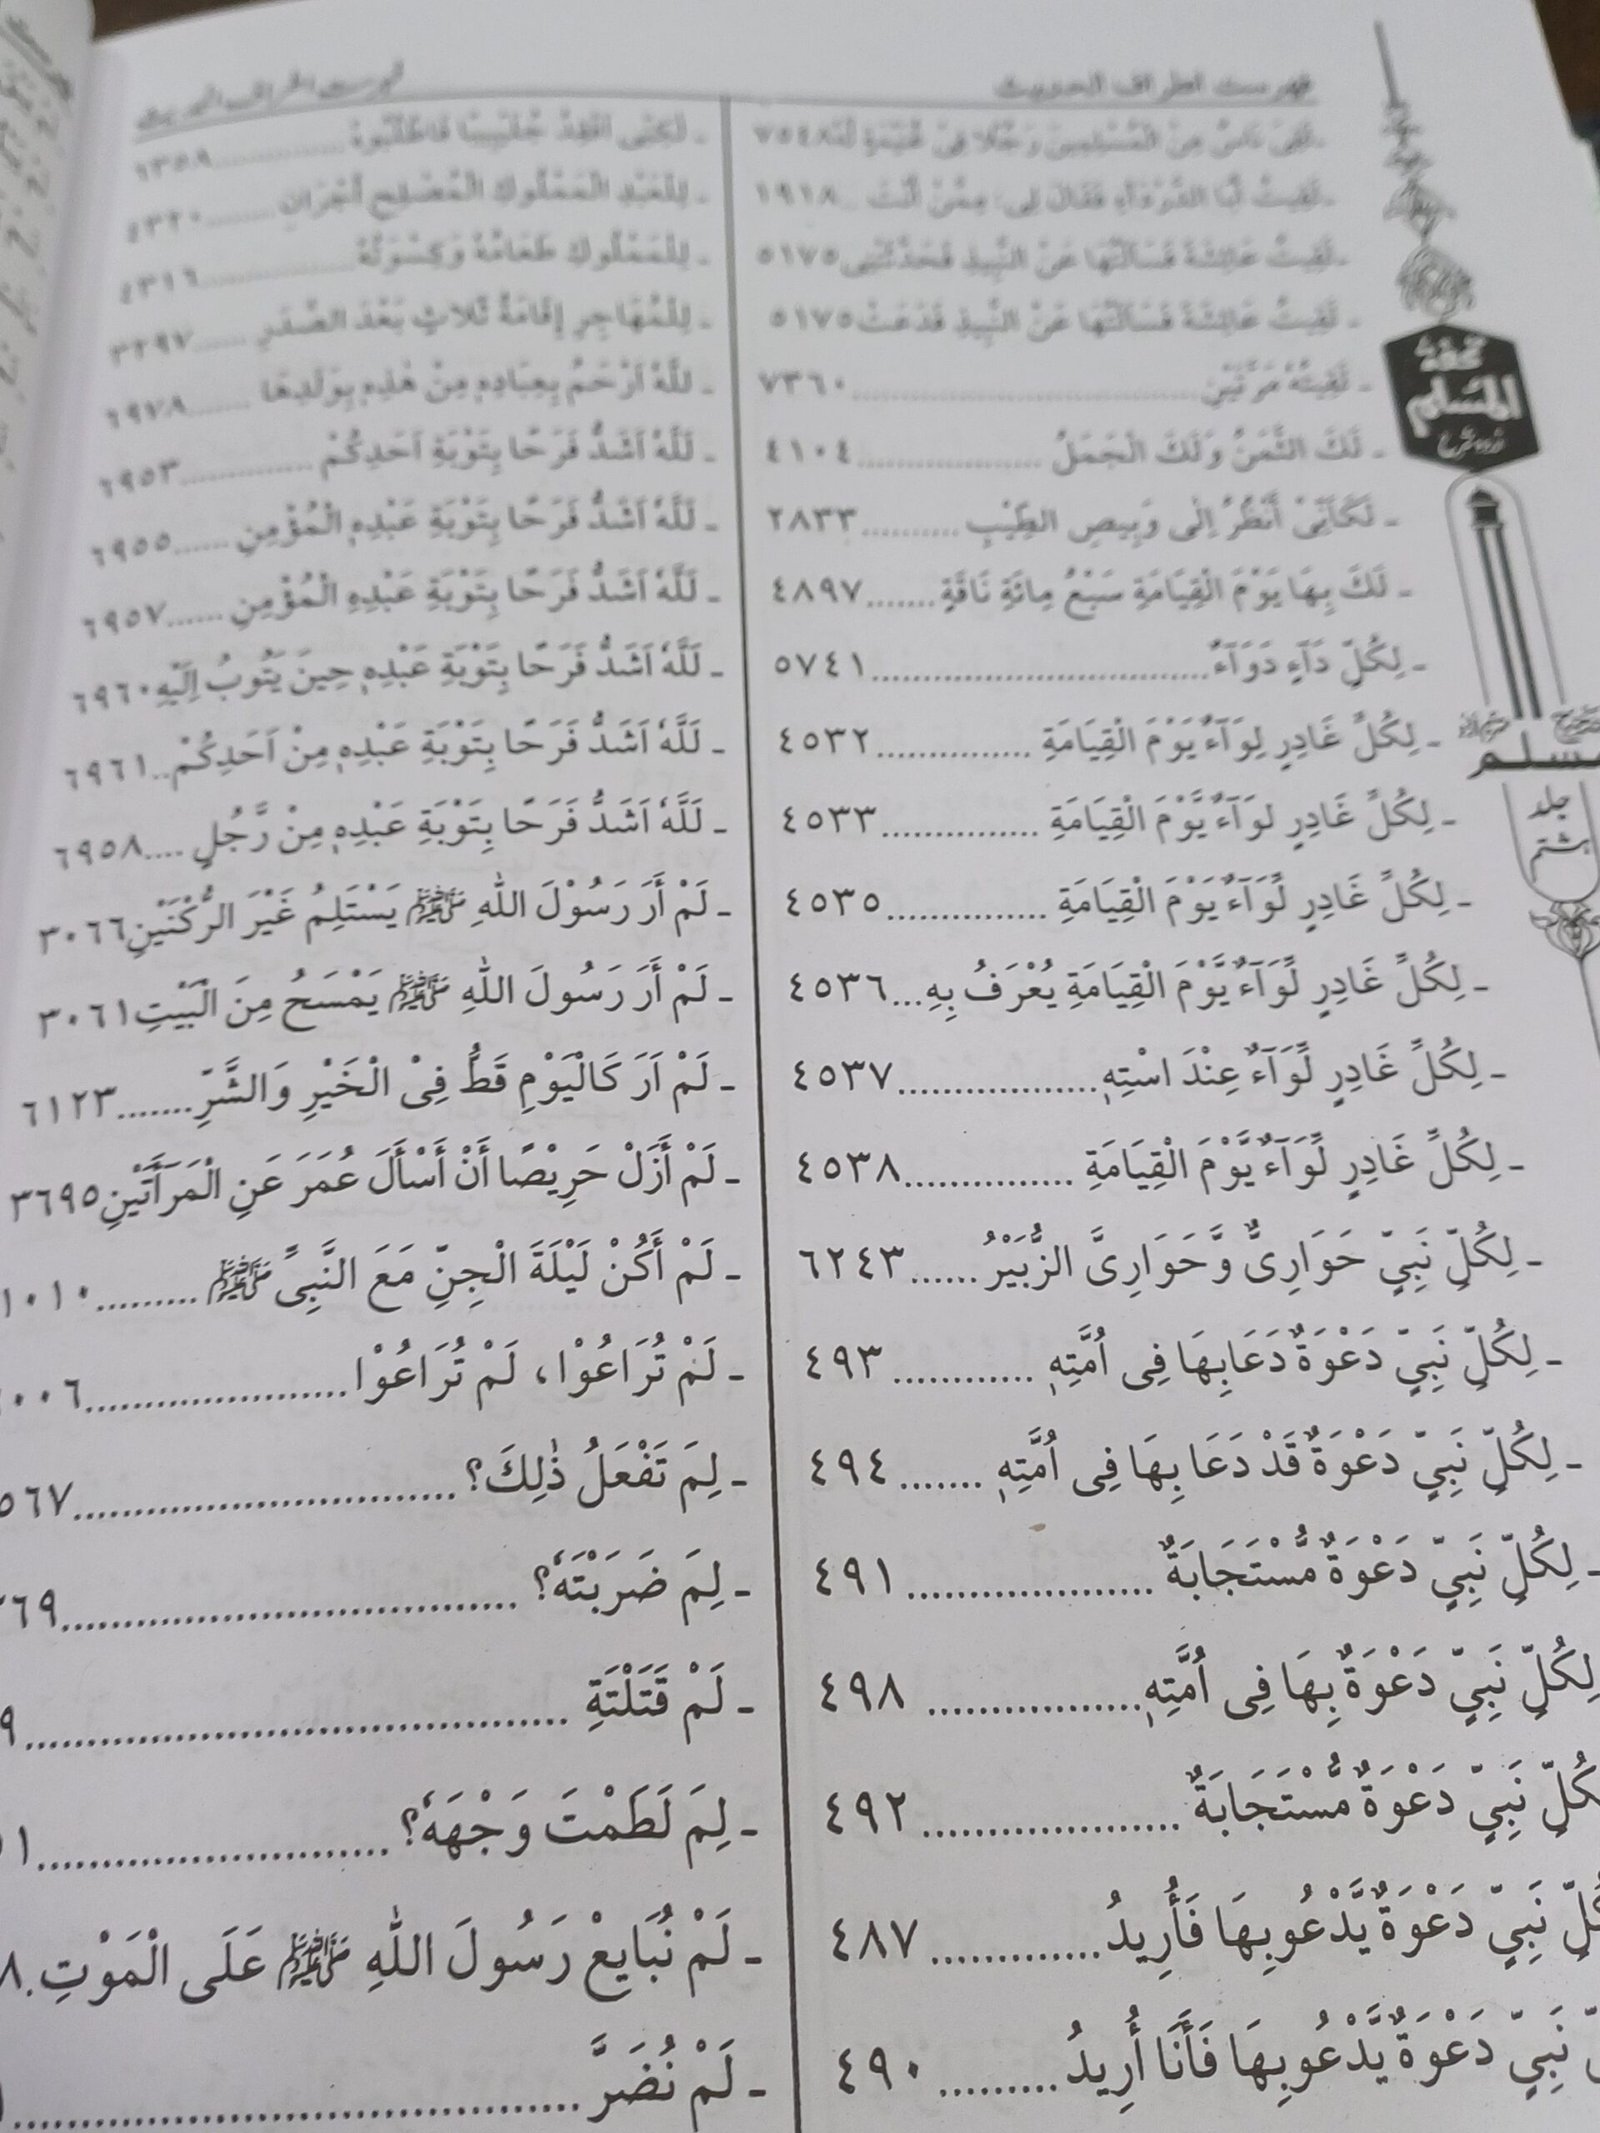 فهرست اطراف الحديث
ـ لَقِيتُ أَبَا الدَّرْدَاءِ فَقَالَ لِي: مِمَّنْ أَنْتَ ..١٩١٨
ـ لَقِيتُ عَائِشَةَ فَسَأَلْتُهَا عَنْ النَّبِيذِ فَحَدَّثَتْنِى ٥١٧٥
ـ لَقِيتُ عَائِشَةَ فَسَأَلْتُهَا عَنْ النَّبِيذِ فَدَعَتْ ٥١٧٥
ـ لَقِيتُهُ مَرَّتَيْنِ ........ ٧٣٦٠
ـ لَكَ الثَّمَنُ وَلَكَ الْجَمَلُ ........ ٤١٠٤
ـ لَكَأَنِّىْ أَنْظُرُ اِلٰى وَبِيصِ الطِّيْبِ ........ ٢٨٣٣
ـ لَكَ بِهَا يَوْمَ الْقِيَامَةِ سَبْعُ مِائَةِ نَاقَةٍ ....... ٤٨٩٧
ـ لِكُلِّ دَآءٍ دَوَآءٌ ........ ٥٧٤١
ـ لِكُلِّ غَادِرٍ لِوَآءٌ يَوْمَ الْقِيَامَةِ ........ ٤٥٣٢
ـ لِكُلِّ غَادِرٍ لِوَآءٌ يَّوْمَ الْقِيَامَةِ ........ ٤٥٣٣
ـ لِكُلِّ غَادِرٍ لِّوَآءٌ يَوْمَ الْقِيَامَةِ ........ ٤٥٣٥
ـ لِكُلِّ غَادِرٍ لِّوَآءٌ يَّوْمَ الْقِيَامَةِ يُعْرَفُ بِهِ ... ٤٥٣٦
ـ لِكُلِّ غَادِرٍ لِّوَآءٌ عِنْدَ اسْتِهٖ ........ ٤٥٣٧
ـ لِكُلِّ غَادِرٍ لِّوَآءٌ يَّوْمَ الْقِيَامَةِ ........ ٤٥٣٨
ـ لِكُلِّ نَبِيٍّ حَوَارِىٌّ وَّحَوَارِىَّ الزُّبَيْرُ ...... ٦٢٤٣
ـ لِكُلِّ نَبِيٍّ دَعْوَةٌ دَعَابِهَا فِى اُمَّتِهٖ ........ ٤٩٣
ـ لِكُلِّ نَبِيٍّ دَعْوَةٌ قَدْ دَعَا بِهَا فِى اُمَّتِهٖ ....... ٤٩٤
ـ لِكُلِّ نَبِيٍّ دَعْوَةٌ مُّسْتَجَابَةٌ ........ ٤٩١
لِكُلِّ نَبِيٍّ دَعْوَةٌ بِهَا فِى اُمَّتِهٖ ........ ٤٩٨
كُلِّ نَبِيٍّ دَعْوَةٌ مُّسْتَجَابَةٌ ........ ٤٩٢
نَبِيٍّ دَعْوَةٌ يَدْعُوبِهَا فَأُرِيدُ ........ ٤٨٧
نَبِيٍّ دَعْوَةٌ يَّدْعُوبِهَا فَأَنَا أُرِيدُ ........ ٤٩٠
فهرست اطراف الحديث
ـ لِلْعَبْدِ الْمَمْلُوكِ الْمُصْلِحِ أَجْرَانِ ........ ٤٣٢٠
ـ لِلْمَمْلُوكِ طَعَامُهُ وَكِسْوَتُهُ ........ ٤٣١٦
ـ لِلْمُهَاجِرِ إِقَامَةُ ثَلَاثٍ بَعْدَ الصَّدَرِ ...... ٣٢٩٧
ـ لَلّٰهُ اَرْحَمُ بِعِبَادِهٖ مِنْ هٰذِهٖ بِوَلَدِهَا ....... ٦٩٧٨
ـ لَلّٰهُ اَشَدُّ فَرَحًا بِتَوْبَةِ اَحَدِكُمْ ........ ٦٩٥٣
ـ لَلّٰهُ اَشَدُّ فَرَحًا بِتَوْبَةِ عَبْدِهٖ الْمُؤْمِنِ ...... ٦٩٥٥
ـ لَلّٰهُ اَشَدُّ فَرَحًا بِتَوْبَةِ عَبْدِهِ الْمُؤْمِنِ ...... ٦٩٥٧
ـ لَلّٰهُ اَشَدُّ فَرَحًا بِتَوْبَةِ عَبْدِهٖ حِينَ يَتُوبُ اِلَيْهِ ٦٩٦٠
ـ لَلّٰهُ اَشَدُّ فَرَحًا بِتَوْبَةِ عَبْدِهٖ مِنْ اَحَدِكُمْ .. ٦٩٦١
ـ لَلّٰهُ اَشَدُّ فَرَحًا بِتَوْبَةِ عَبْدِهٖ مِنْ رَّجُلٍ .... ٦٩٥٨
ـ لَمْ أَرَ رَسُوْلَ اللّٰهِ ﷺ يَسْتَلِمُ غَيْرَ الرُّكْنَيْنِ ٣٠٦٦
ـ لَمْ أَرَ رَسُولَ اللّٰهِ ﷺ يَمْسَحُ مِنَ الْبَيْتِ ٣٠٦١
ـ لَمْ اَرَ كَالْيَوْمِ قَطُّ فِىْ الْخَيْرِ وَالشَّرِّ ....... ٦١٢٣
ـ لَمْ أَزَلْ حَرِيْصًا أَنْ أَسْأَلَ عُمَرَ عَنِ الْمَرَأَتَيْنِ ٣٦٩٥
ـ لَمْ أَكُنْ لَيْلَةَ الْجِنِّ مَعَ النَّبِىِّ ﷺ ........ ١٠١٠
ـ لَمْ تُرَاعُوْا، لَمْ تُرَاعُوْا ........ ٠٠٦
ـ لِمَ تَفْعَلُ ذٰلِكَ؟ ........ ٥٦٧
ـ لِمَ ضَرَبْتَهٗ؟ ........ ٦٩
ـ لَمْ قَتَلْتَةِ ........ ٩
ـ لِمَ لَطَمْتَ وَجْهَهٗ؟ ........ ١
ـ لَمْ نُبَايِعْ رَسُولَ اللّٰهِ ﷺ عَلَى الْمَوْتِ . ٨
ـ لَمْ نُضَرَّ ........
تحفة
المسلم
مسلم
جلد
ہشتم